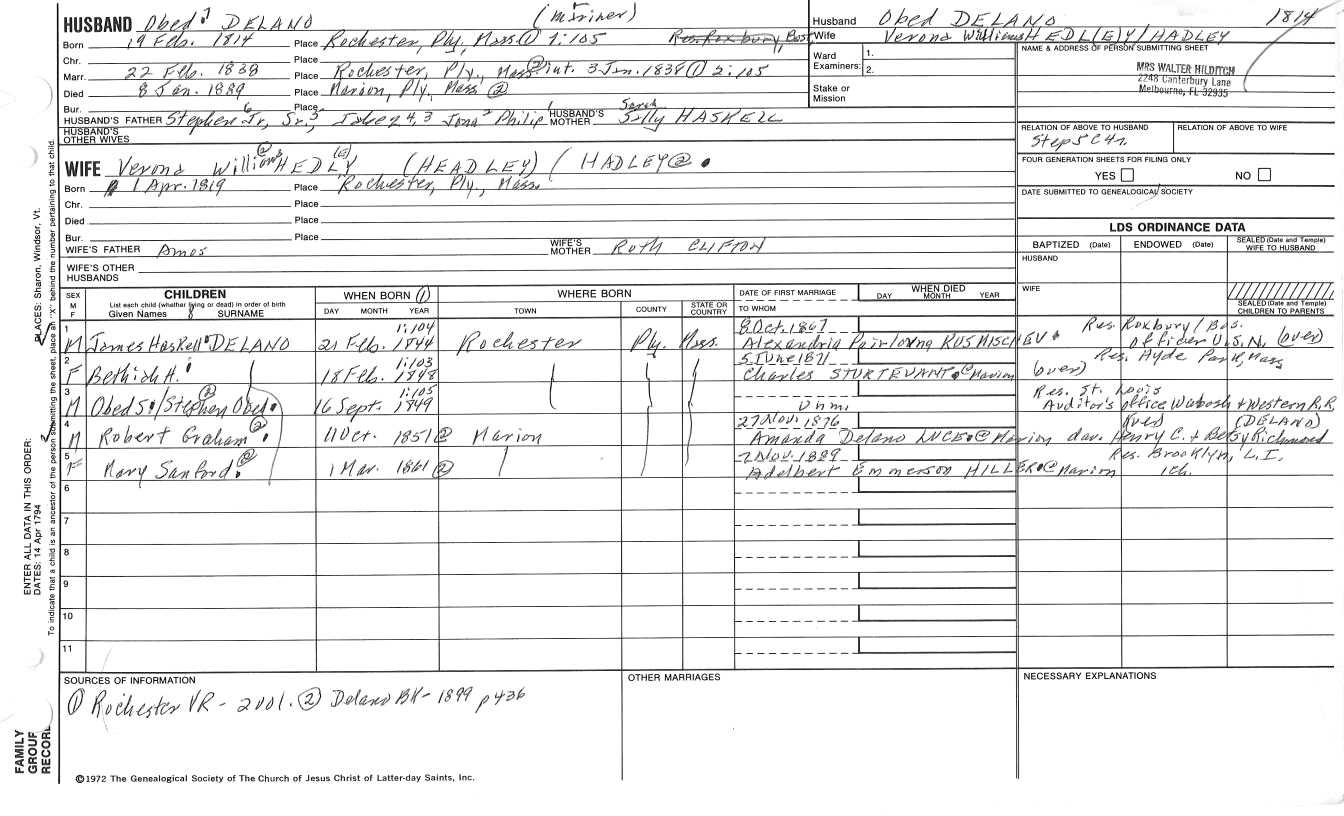 HUSBAND Obed 7 DELANO (Mariner)
Born 19 Feb. 1814 Place Rochester, Ply, Mass ① 1:105 Res. Roxbury, Bost
Chr. Place
Marr. 22 Feb. 1838 Place Rochester, Ply., Mass ② int. 3 Jan. 1838 ① 2:105
Died 8 Jan. 1889 Place Marion, Ply, Mass ②
Bur. Place
HUSBAND'S FATHER Stephen 6 Jr, Sr. 5, Jabez 4, 3 Jona 2 Philip 1 HUSBAND'S MOTHER Sarah Sally HASKELL
HUSBAND'S OTHER WIVES
Husband Obed DELANO 1814
Wife Verona Williams HEDL(E)Y/HADLEY
Ward Examiners: 1.
2.
Stake or Mission
NAME & ADDRESS OF PERSON SUBMITTING SHEET
MRS WALTER HILDITCH
2248 Canterbury Lane
Melbourne, FL 32935
RELATION OF ABOVE TO HUSBAND RELATION OF ABOVE TO WIFE
Step 5C4r.
FOUR GENERATION SHEETS FOR FILING ONLY
YES NO
DATE SUBMITTED TO GENEALOGICAL SOCIETY
WIFE Verona Williams ② HEDL(E)Y (HEADLEY) (HADLEY ②
Born 1 Apr. 1819 Place Rochester, Ply, Mass.
Chr. Place
Died Place
Bur. Place
WIFE'S FATHER Amos WIFE'S MOTHER Ruth CLIFTON
WIFE'S OTHER HUSBANDS
LDS ORDINANCE DATA
BAPTIZED (Date) ENDOWED (Date) SEALED (Date and Temple) WIFE TO HUSBAND
HUSBAND
WIFE
SEALED (Date and Temple) CHILDREN TO PARENTS
SEX M F
CHILDREN
List each child (whether living or dead) in order of birth
Given Names SURNAME
WHEN BORN ①
DAY MONTH YEAR
WHERE BORN
TOWN COUNTY STATE OR COUNTRY
DATE OF FIRST MARRIAGE
TO WHOM
WHEN DIED
DAY MONTH YEAR
1 M James Haskell DELANO 21 Feb. 1844 1:104 Rochester Ply. Mass. 8 Oct. 1867
Alexandria Pairloving RUSMISCHEV Res. Roxbury/Bos. Officer U.S.N. (over)
2 F Bethiah H. 18 Feb. 1848 1:103 5 June 1871
Charles STURTEVANT ② Marion (over) Res. Hyde Park, Mass
3 M Obed S./Stephen Obed ② 16 Sept. 1849 1:105 Unm. Res. St. Louis
Auditor's office Wabash & Western R.R.
4 M Robert Graham ② 11 Oct. 1851 ② Marion 27 Nov. 1876
Amanda Delano LUCE ② Marion dau. Henry C. & Betsy Richmond (DELANO)
5 F Mary Sanford ② 1 Mar. 1861 ② 2 Nov. 1889
Adelbert Emmerson HILLER ② Marion Res. Brooklyn, L.I. 1ch.
6
7
8
9
10
11
SOURCES OF INFORMATION
① Rochester VR - 2 vol. ② Delano BK - 1899 p 436
OTHER MARRIAGES
NECESSARY EXPLANATIONS
©1972 The Genealogical Society of The Church of Jesus Christ of Latter-day Saints, Inc.
FAMILY GROUP RECORD
ENTER ALL DATA IN THIS ORDER:
DATES: 14 Apr 1794
PLACES: Sharon, Windsor, Vt.
To indicate that a child is an ancestor of the person submitting the sheet, place an "X" behind the number pertaining to that child.